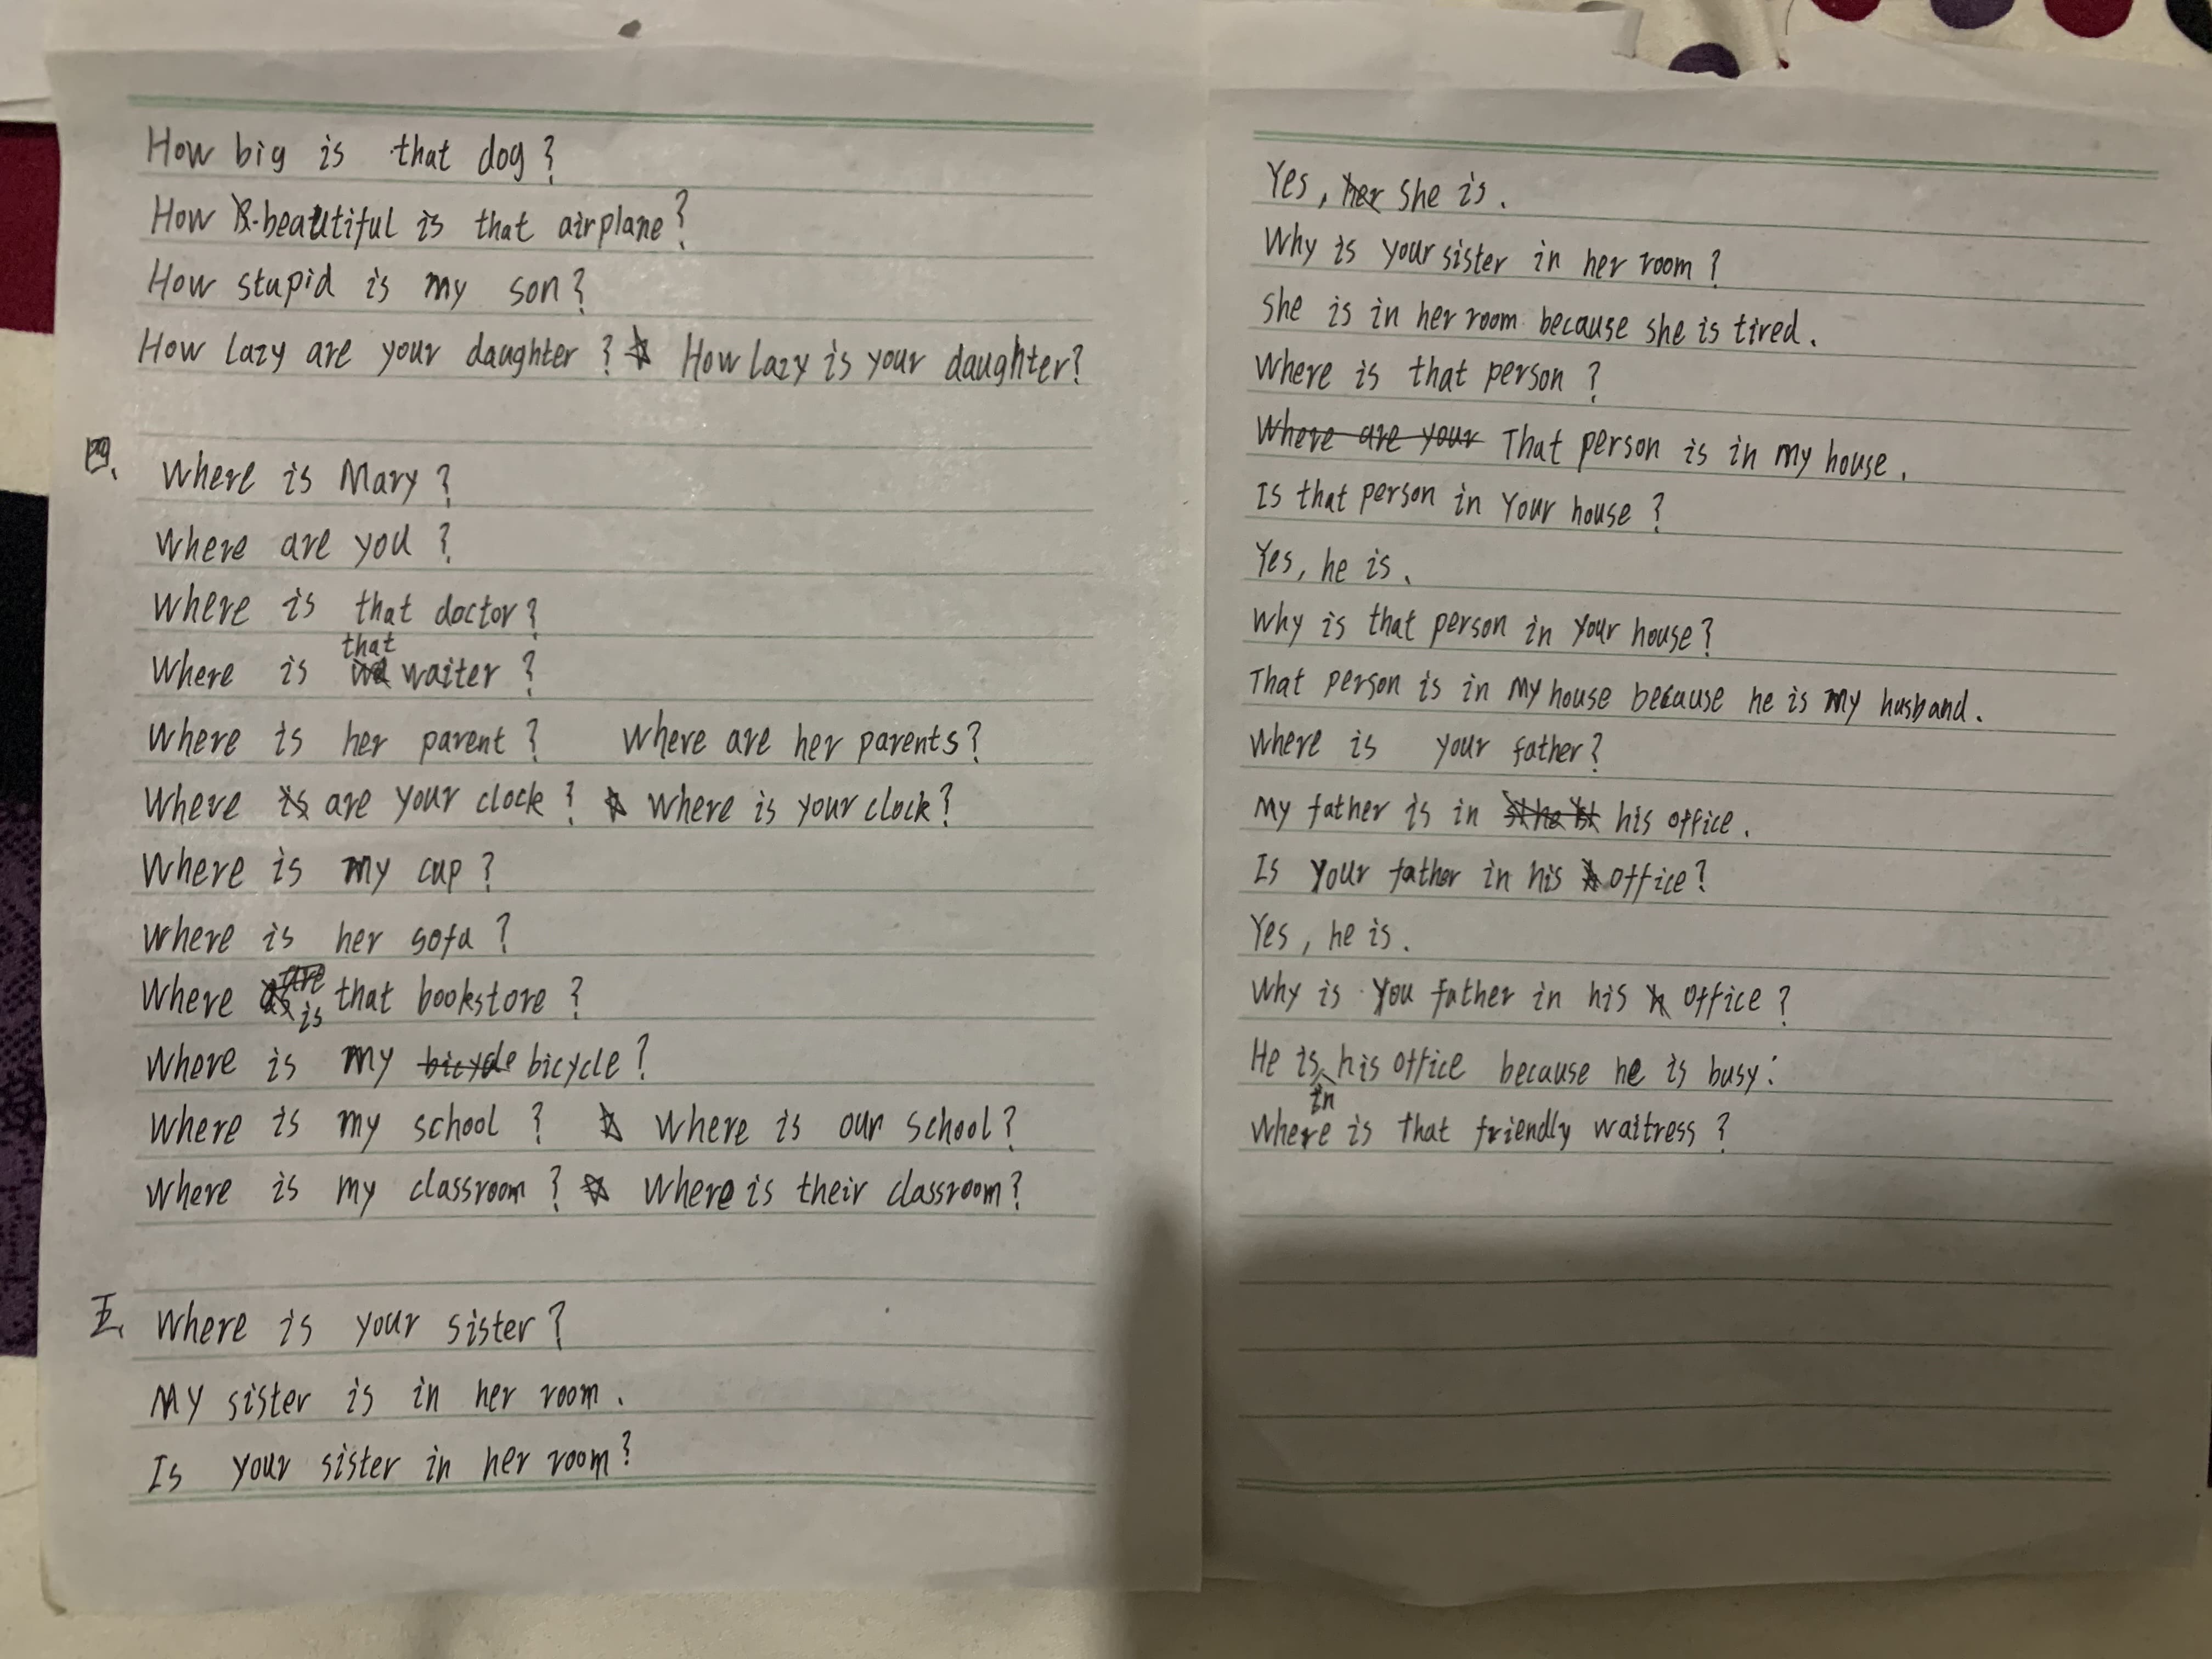 How big is that dog?
How beautiful is that airplane?
How stupid is my son?
How lazy are your daughter? ☆ How lazy is your daughter?
四. Where is Mary?
Where are you?
Where is that doctor?
Where is that waiter?
Where is her parent? Where are her parents?
Where are your clock? ☆ Where is your clock?
Where is my cup?
Where is her sofa?
Where is that bookstore?
Where is my bicycle?
Where is my school? ☆ Where is our school?
Where is my classroom? ☆ Where is their classroom?
五. Where is your sister?
My sister is in her room.
Is your sister in her room?
Yes, her she is.
Why is your sister in her room?
She is in her room because she is tired.
Where is that person?
Where are your That person is in my house.
Is that person in your house?
Yes, he is.
Why is that person in your house?
That person is in my house because he is my husband.
Where is your father?
My father is in his office.
Is your father in his office?
Yes, he is.
Why is you father in his office?
He is in his office because he is busy.
Where is that friendly waitress?